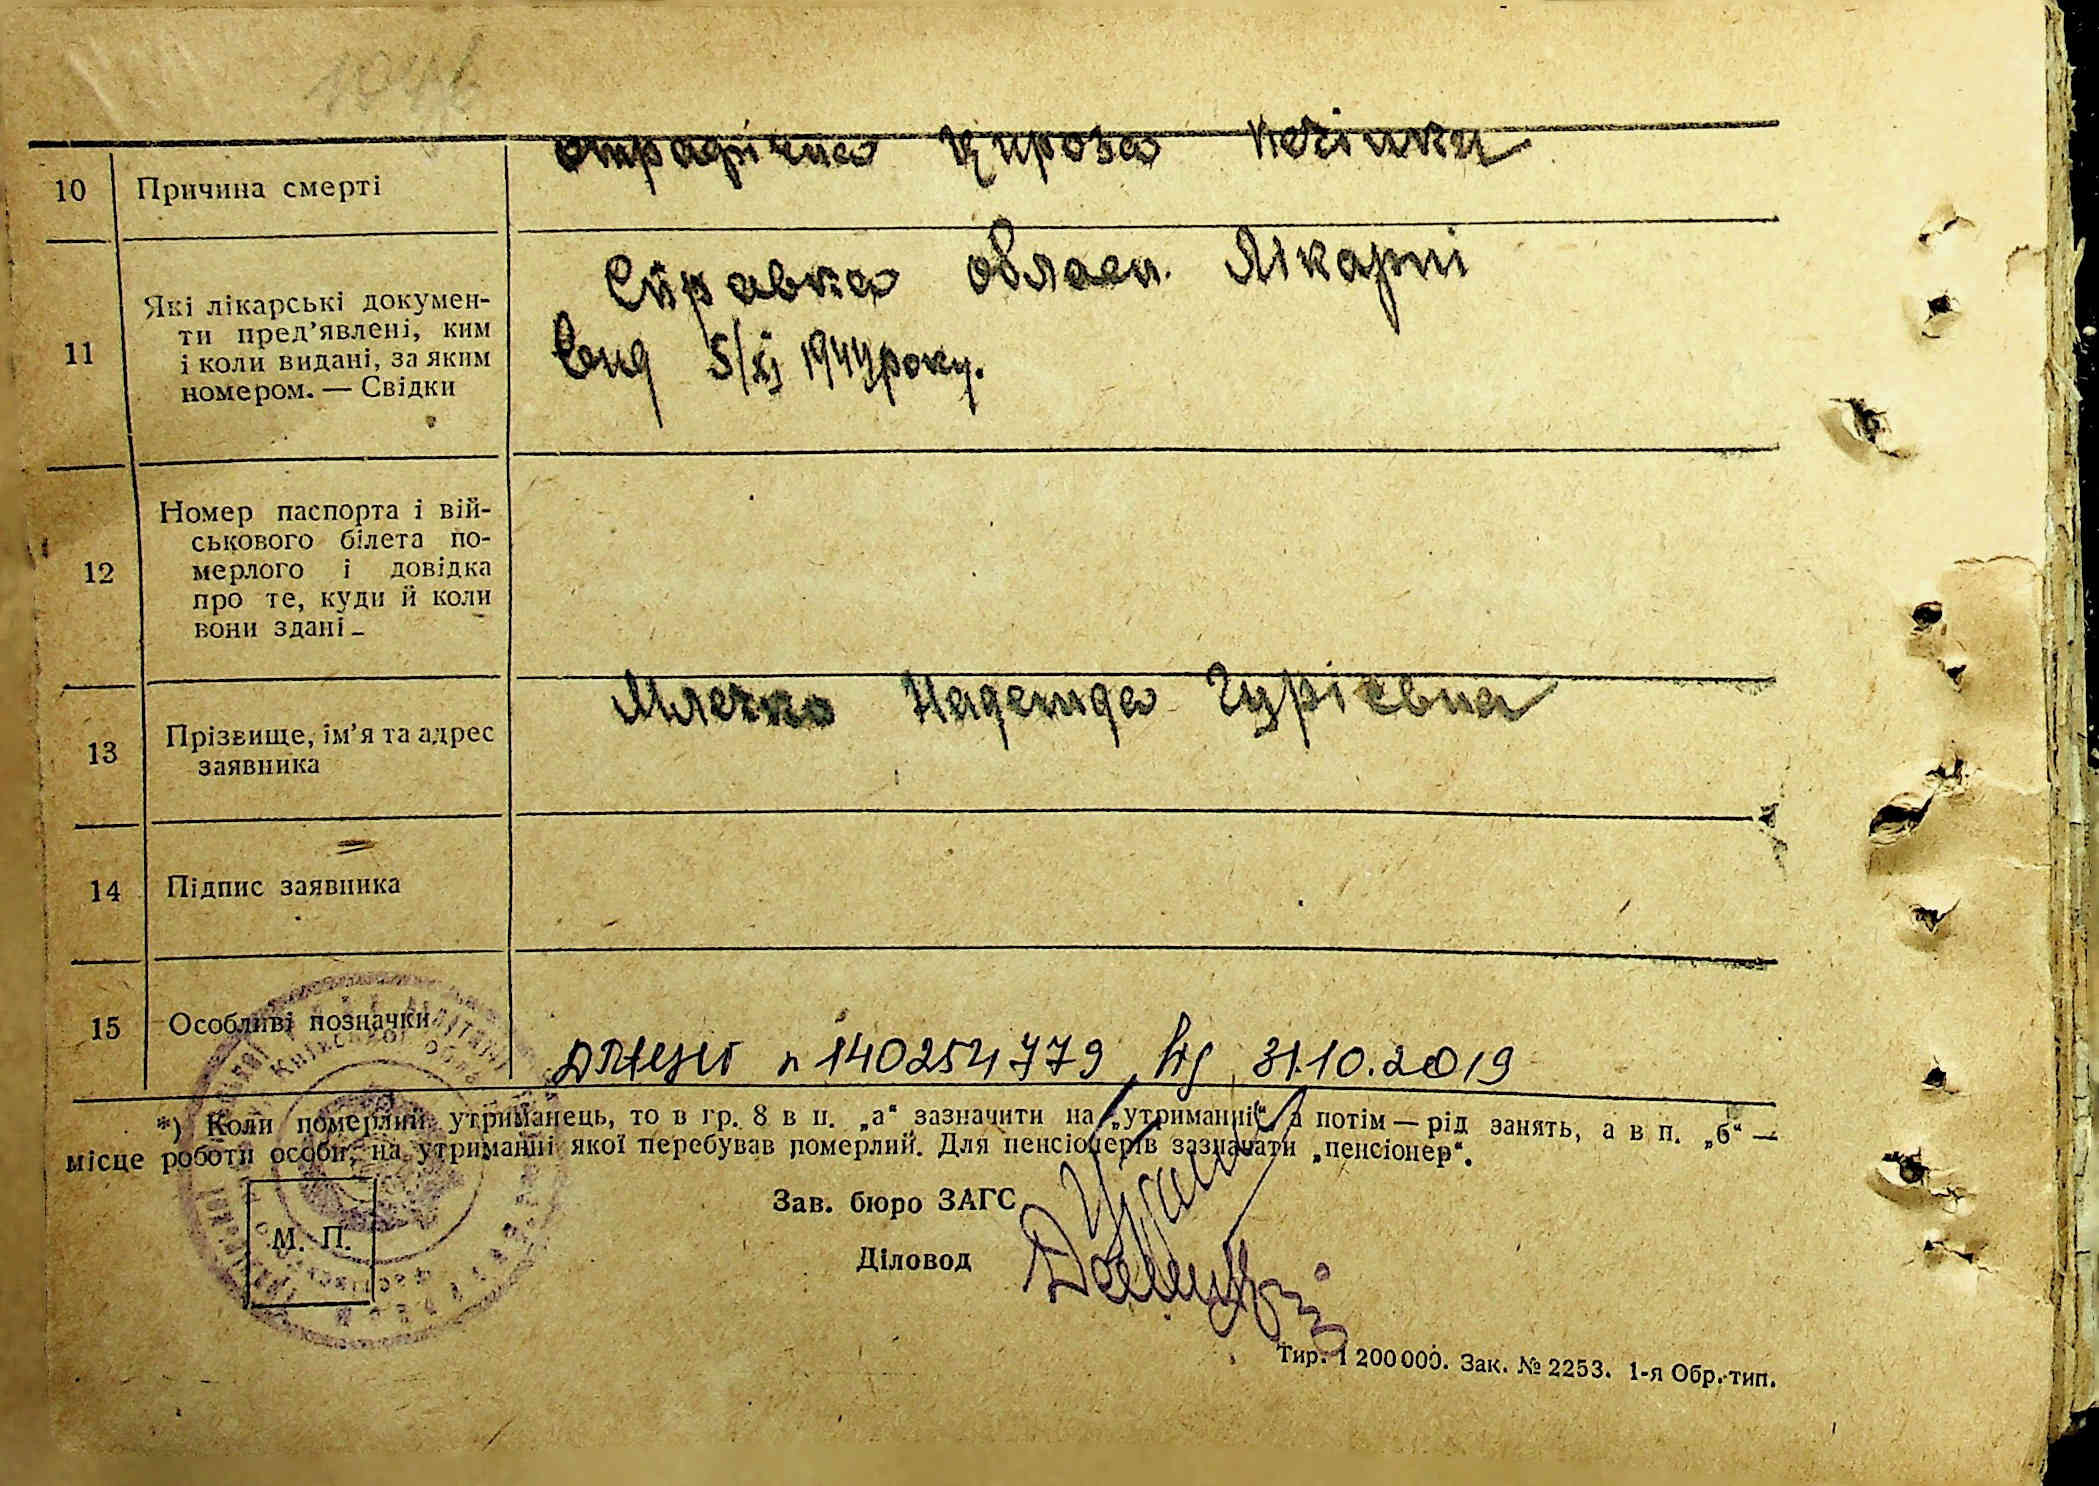 10 Причина смерті
атрофічна цироза печінки
11 Які лікарські докумен-
ти пред’явлені, ким
і коли видані, за яким
номером. — Свідки
Справка обласн. Лікарні
від 5/XI 1944 року.
12 Номер паспорта і вій-
ськового білета по-
мерлого і довідка
про те, куди й коли
вони здані
13 Прізвище, ім’я та адрес
заявника
Надежда Гуріевна
14 Підпис заявника
15 Особливі позначки
140254779 від 31.10.2019
*) Коли померлий утриманець, то в гр. 8 в п. „а“ зазначити на „утриманні“, а потім — рід занять, а в п. „б“ —
місце роботи особи, на утриманні якої перебував померлий. Для пенсіонерів зазначати „пенсіонер“.
Зав. бюро ЗАГС
М. П.
Діловод
Тир. 1 200 000. Зак. № 2253. 1-я Обр. тип.